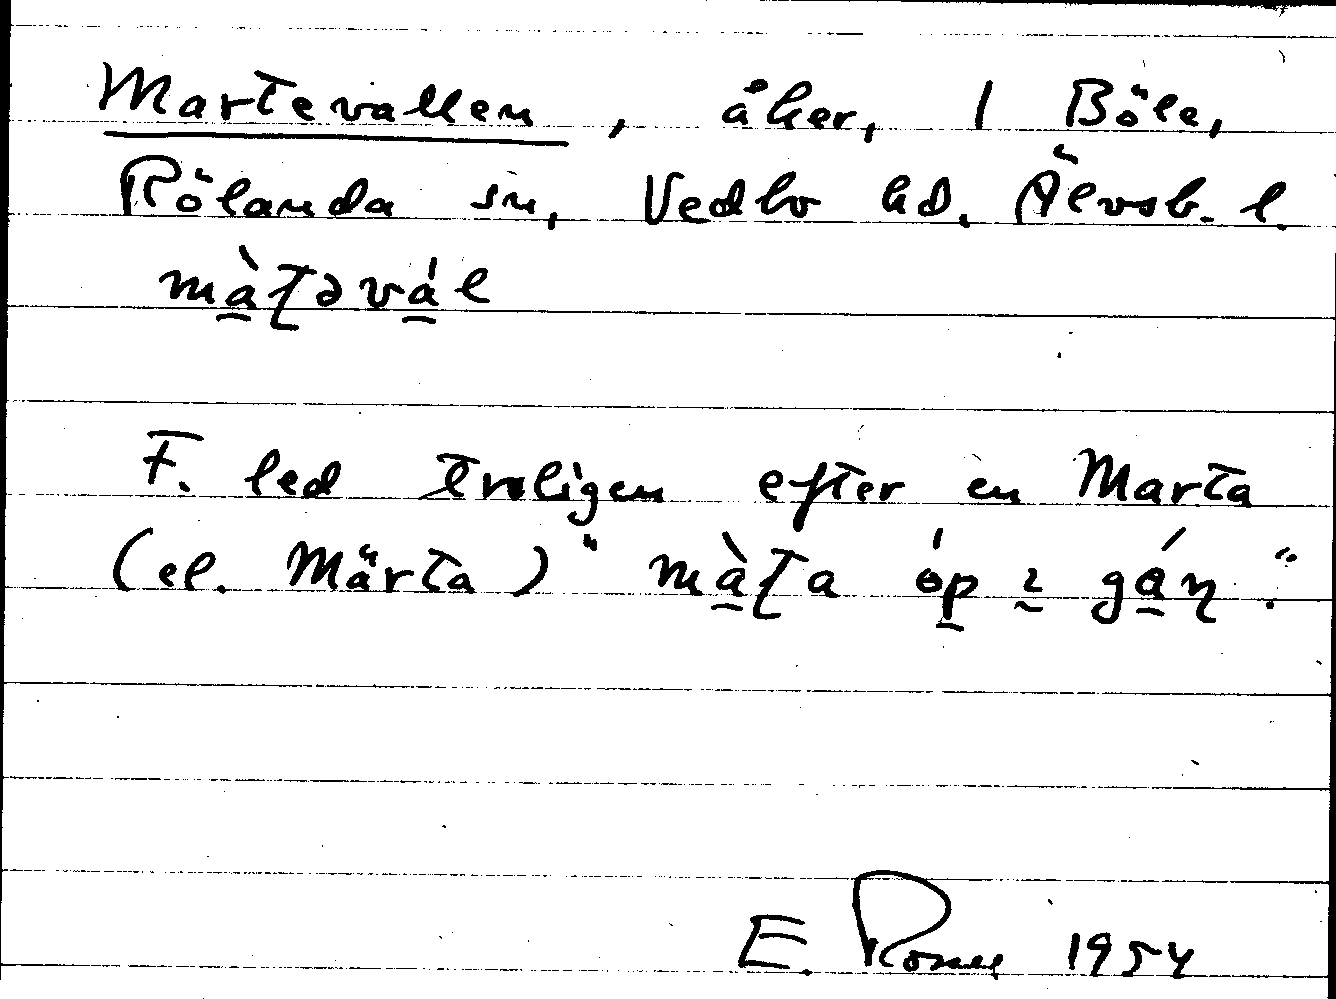 Martevallen, åker, 1 Böle,
Rölanda sn, Vedbo hd. Älvsb. l.
mà̱ʈəvá̱l
F. led troligen efter en Marta
(el. Märta) "mà̱ʈa óp̱ ɪ gá̱ɳ."
E. 1954